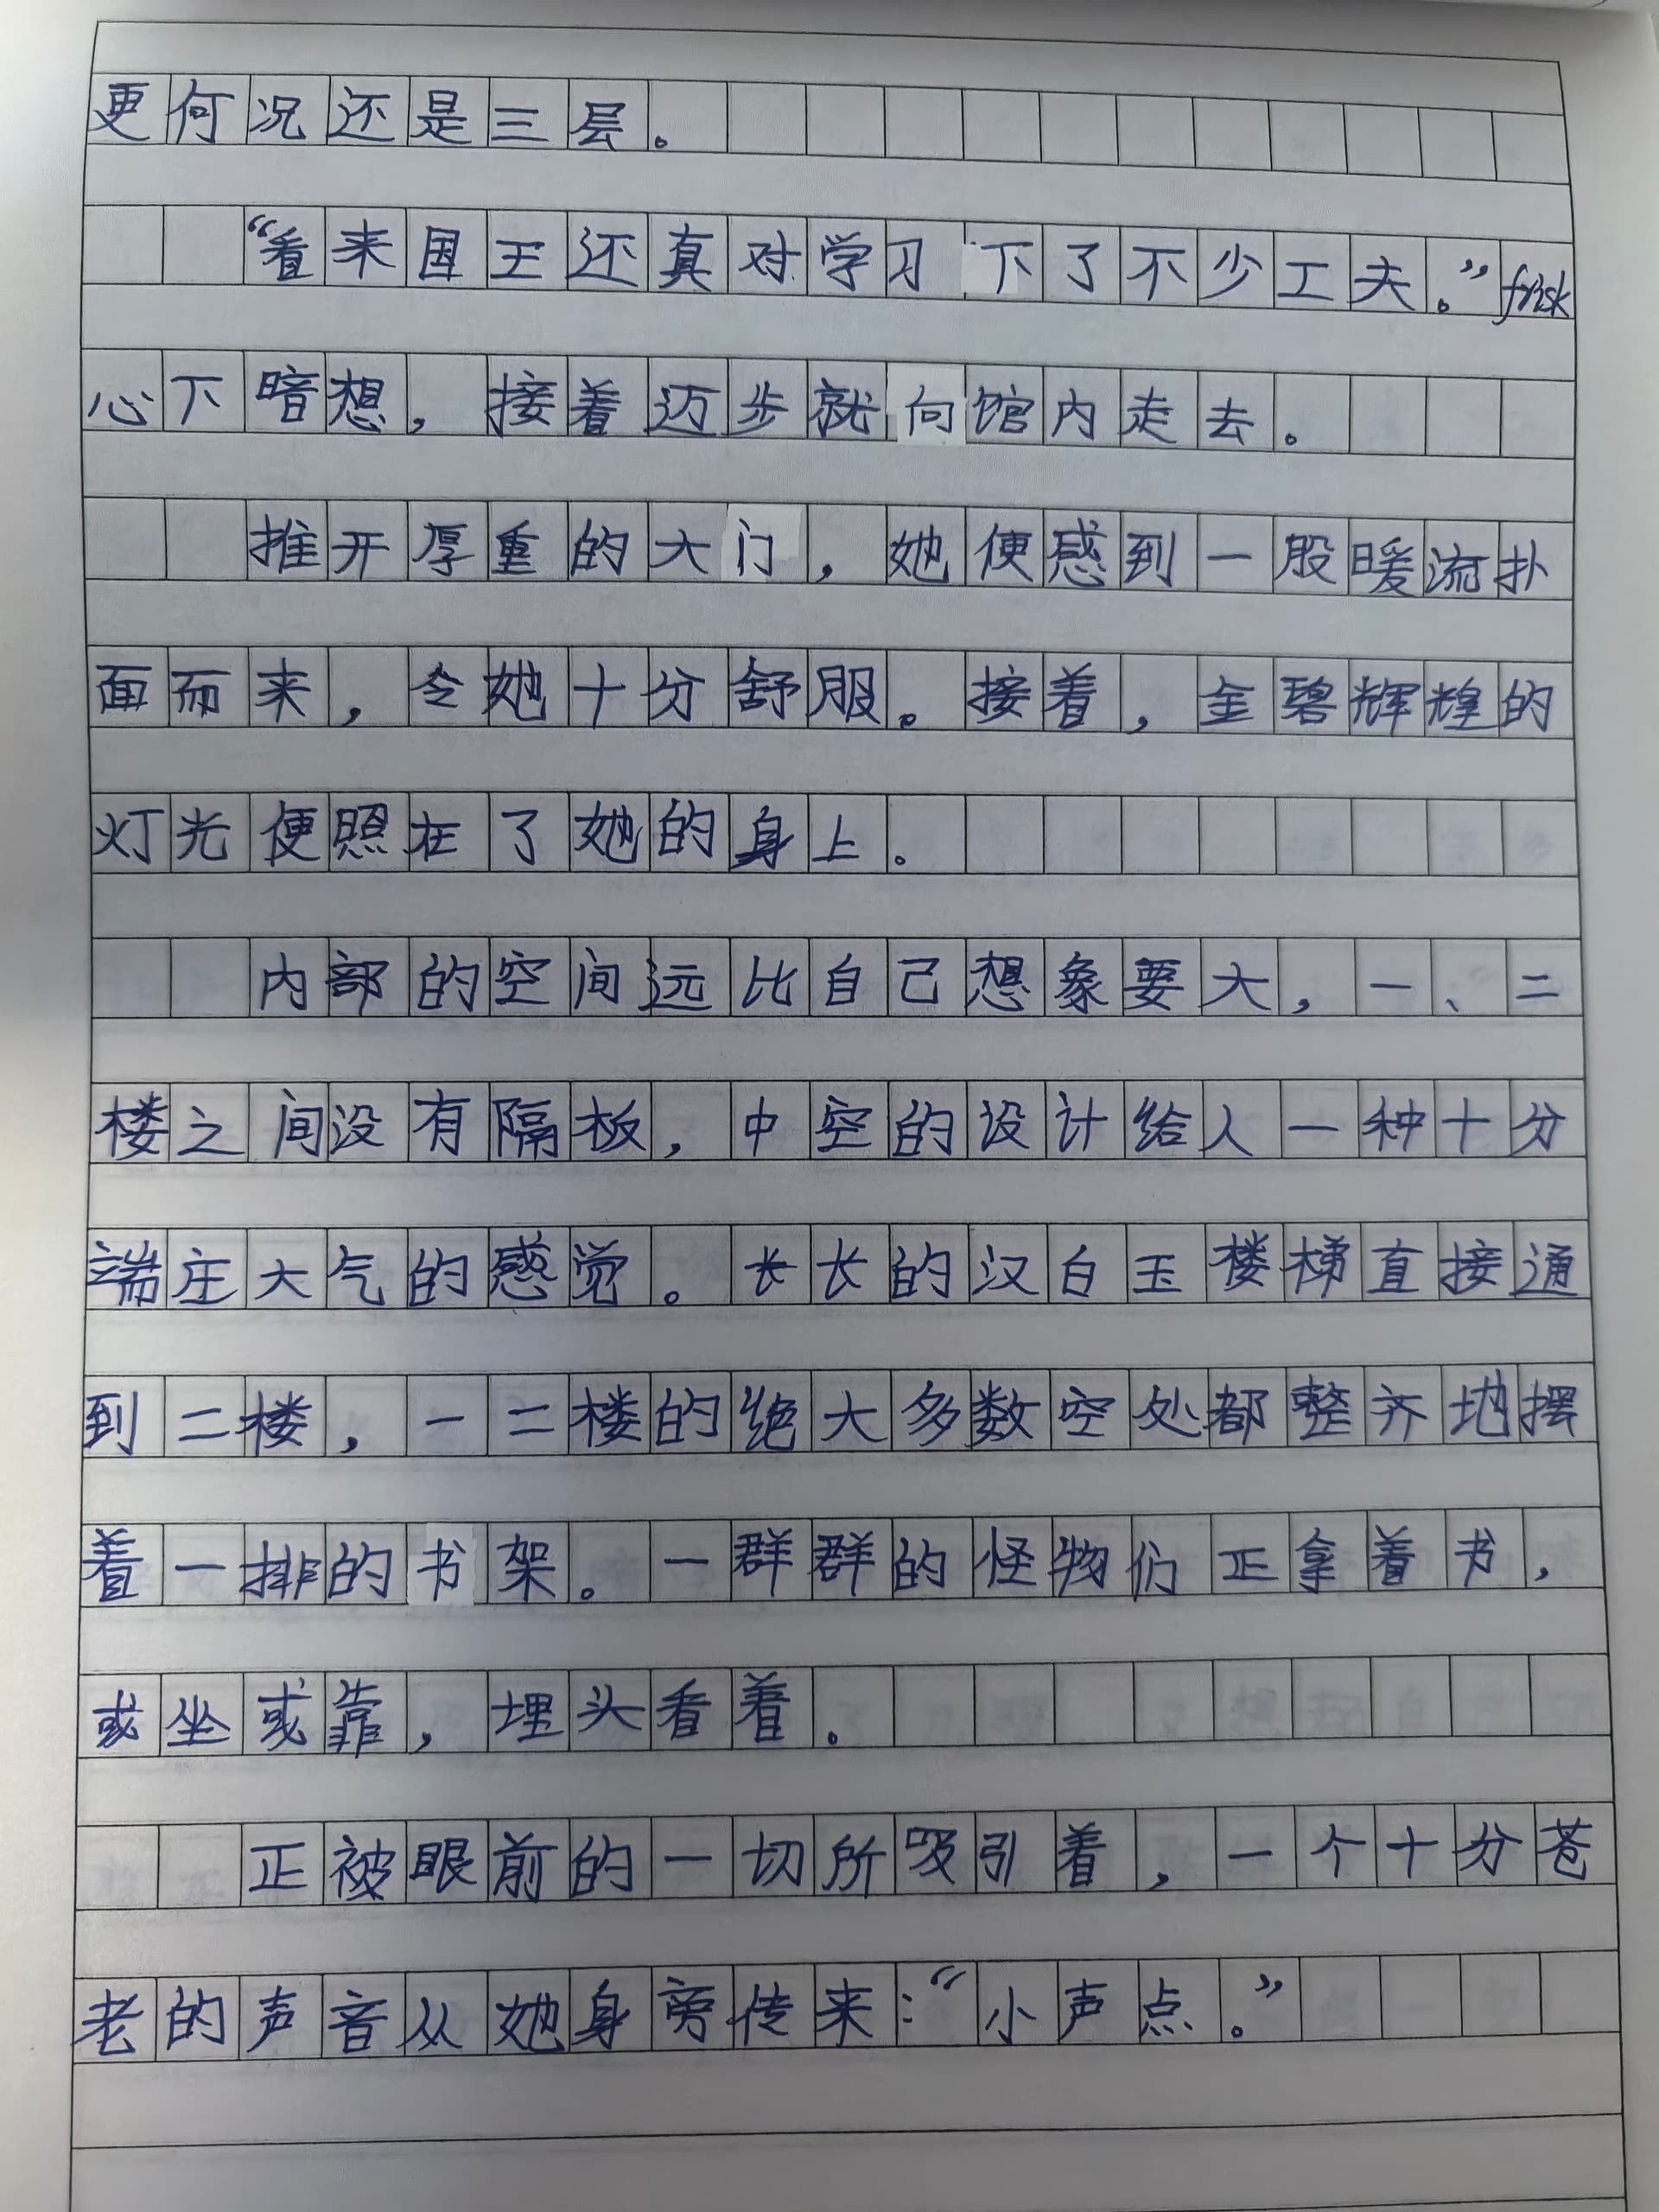 更何况还是三层。
“看来国王还真对学习下了不少工夫。”frisk
心下暗想，接着迈步就向馆内走去。
推开厚重的大门，她便感到一股暖流扑
面而来，令她十分舒服。接着，金碧辉煌的
灯光便照在了她的身上。
内部的空间远比自己想象要大，一、二
楼之间没有隔板，中空的设计给人一种十分
端庄大气的感觉。长长的汉白玉楼梯直接通
到二楼，一二楼的绝大多数空处都整齐地摆
着一排的书架。一群群的怪物们正拿着书，
或坐或靠，埋头看着。
正被眼前的一切所吸引着，一个十分苍
老的声音从她身旁传来：“小声点。”